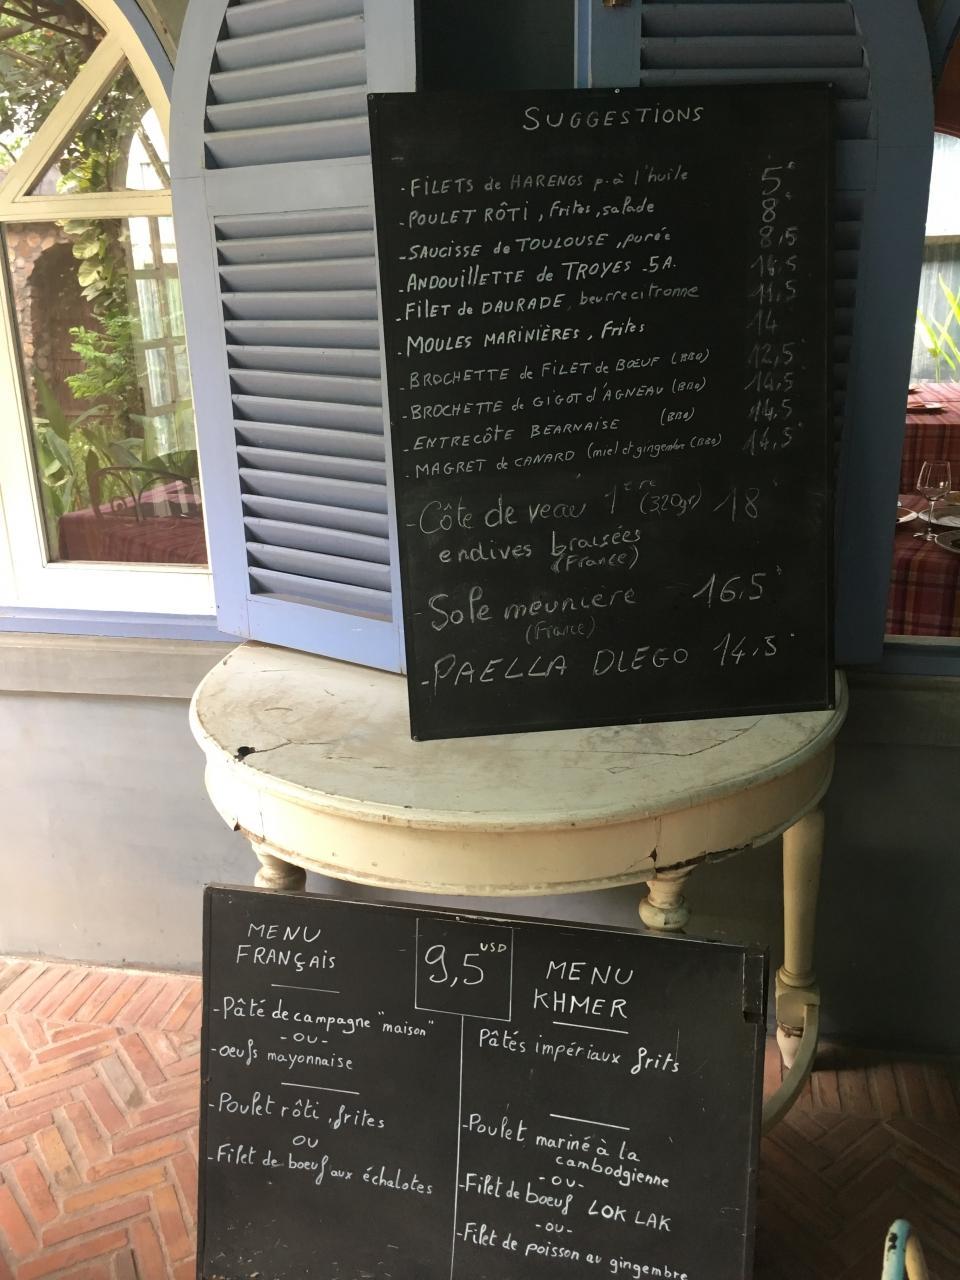 SUGGESTIONS
-FILETS de HARENGS p.à l'huile 5
-POULET RÔTI, frites, salade 8
-SAUCISSE de TOULOUSE, purée 8,5
-ANDOUILLETTE de TROYES 5A.
-FILET de DAURADE, beurre citronne 11,5
-MOULES MARINIÈRES, frites 14
-BROCHETTE de FILET de BŒUF (BBQ) 12,5
-BROCHETTE de GIGOT d'AGNEAU (BBQ) 14,5
-ENTRECÔTE BEARNAISE (BBQ) 14,5
-MAGRET de CANARD (miel et gingembre (BBQ) 14,5
-Côte de veau 1ère (320gr) 18
endives braisées
(France)
-Sole meunière 16.5
(France)
-PAELLA DIEGO 14,5
MENU
FRANÇAIS
-Pâté de campagne "maison"
-OU-
-oeufs mayonnaise
-Poulet rôti, frites
OU
-Filet de boeuf aux échalotes
9,5 USD
MENU
KHMER
Pâtés impériaux frits
-Poulet mariné à la
cambodgienne
-OU-
-Filet de boeuf LOK LAK
-OU-
-Filet de poisson au gingembre